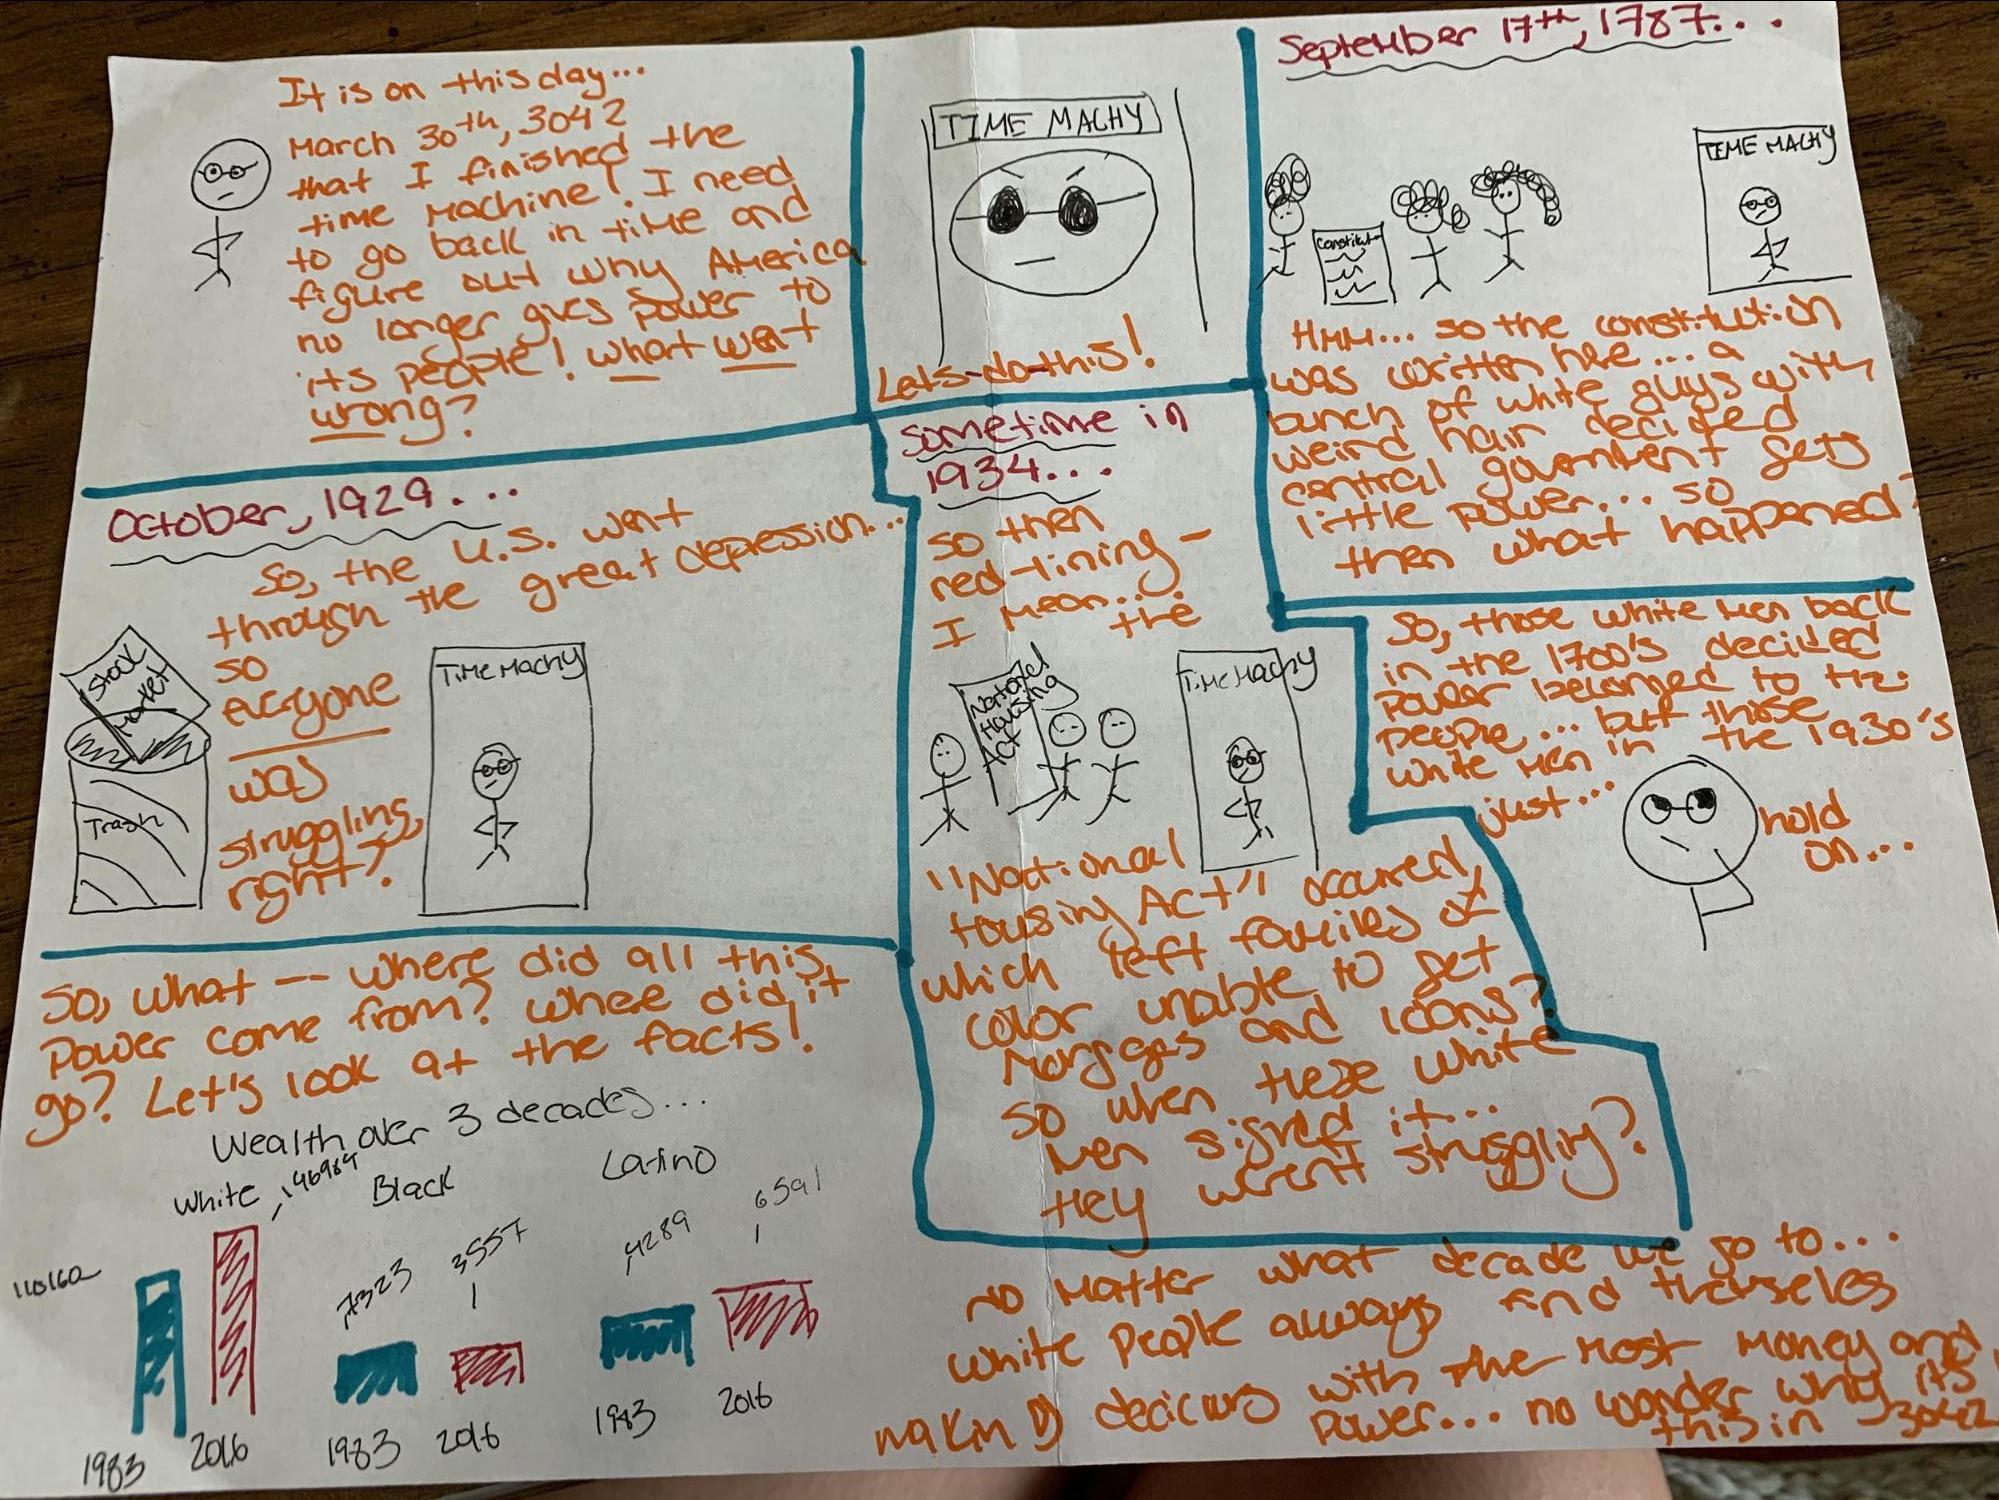 It is on this day...
March 30th, 3042
that I finished the
time machine! I need
to go back in time and
figure out why America
no longer gives power to
its people! what went
wrong?
TIME MACHY
Lets-do-this!
September 17th, 1787...
constitut
TIME MACHY
HMM... so the constitution
was written here... a
bunch of white guys with
weird hair decided
central government gets
little power... so
then what happened?
October, 1929...
So, the U.S. went
through the great depression...
so
everyone
was
struggling,
right?
Stock
Market
Trash
TIME MACHY
sometime in
1934...
so then
red-lining-
I mean... the
National
Housing
Act
TIME MACHY
"National
Housing Act" occurred,
which left families of
color unable to get
morgges and loans?
so when these white
men signed it...
they weren't struggling?
So, those white men back
in the 1700's decided
power belonged to the
people... but those
white men in the 1930's
just...
hold
on...
So, what -- where did all this
power come from? Where did it
go? Let's look at the facts!
Wealth over 3 decades...
White
146984
Black
Latino
110160
7323
3557
4289
6591
1983
2016
1983
2016
1983
2016
no matter what decade we go to...
white people always find themseles
with the most money and
making decicions
power... no wonder why its
this in 3042